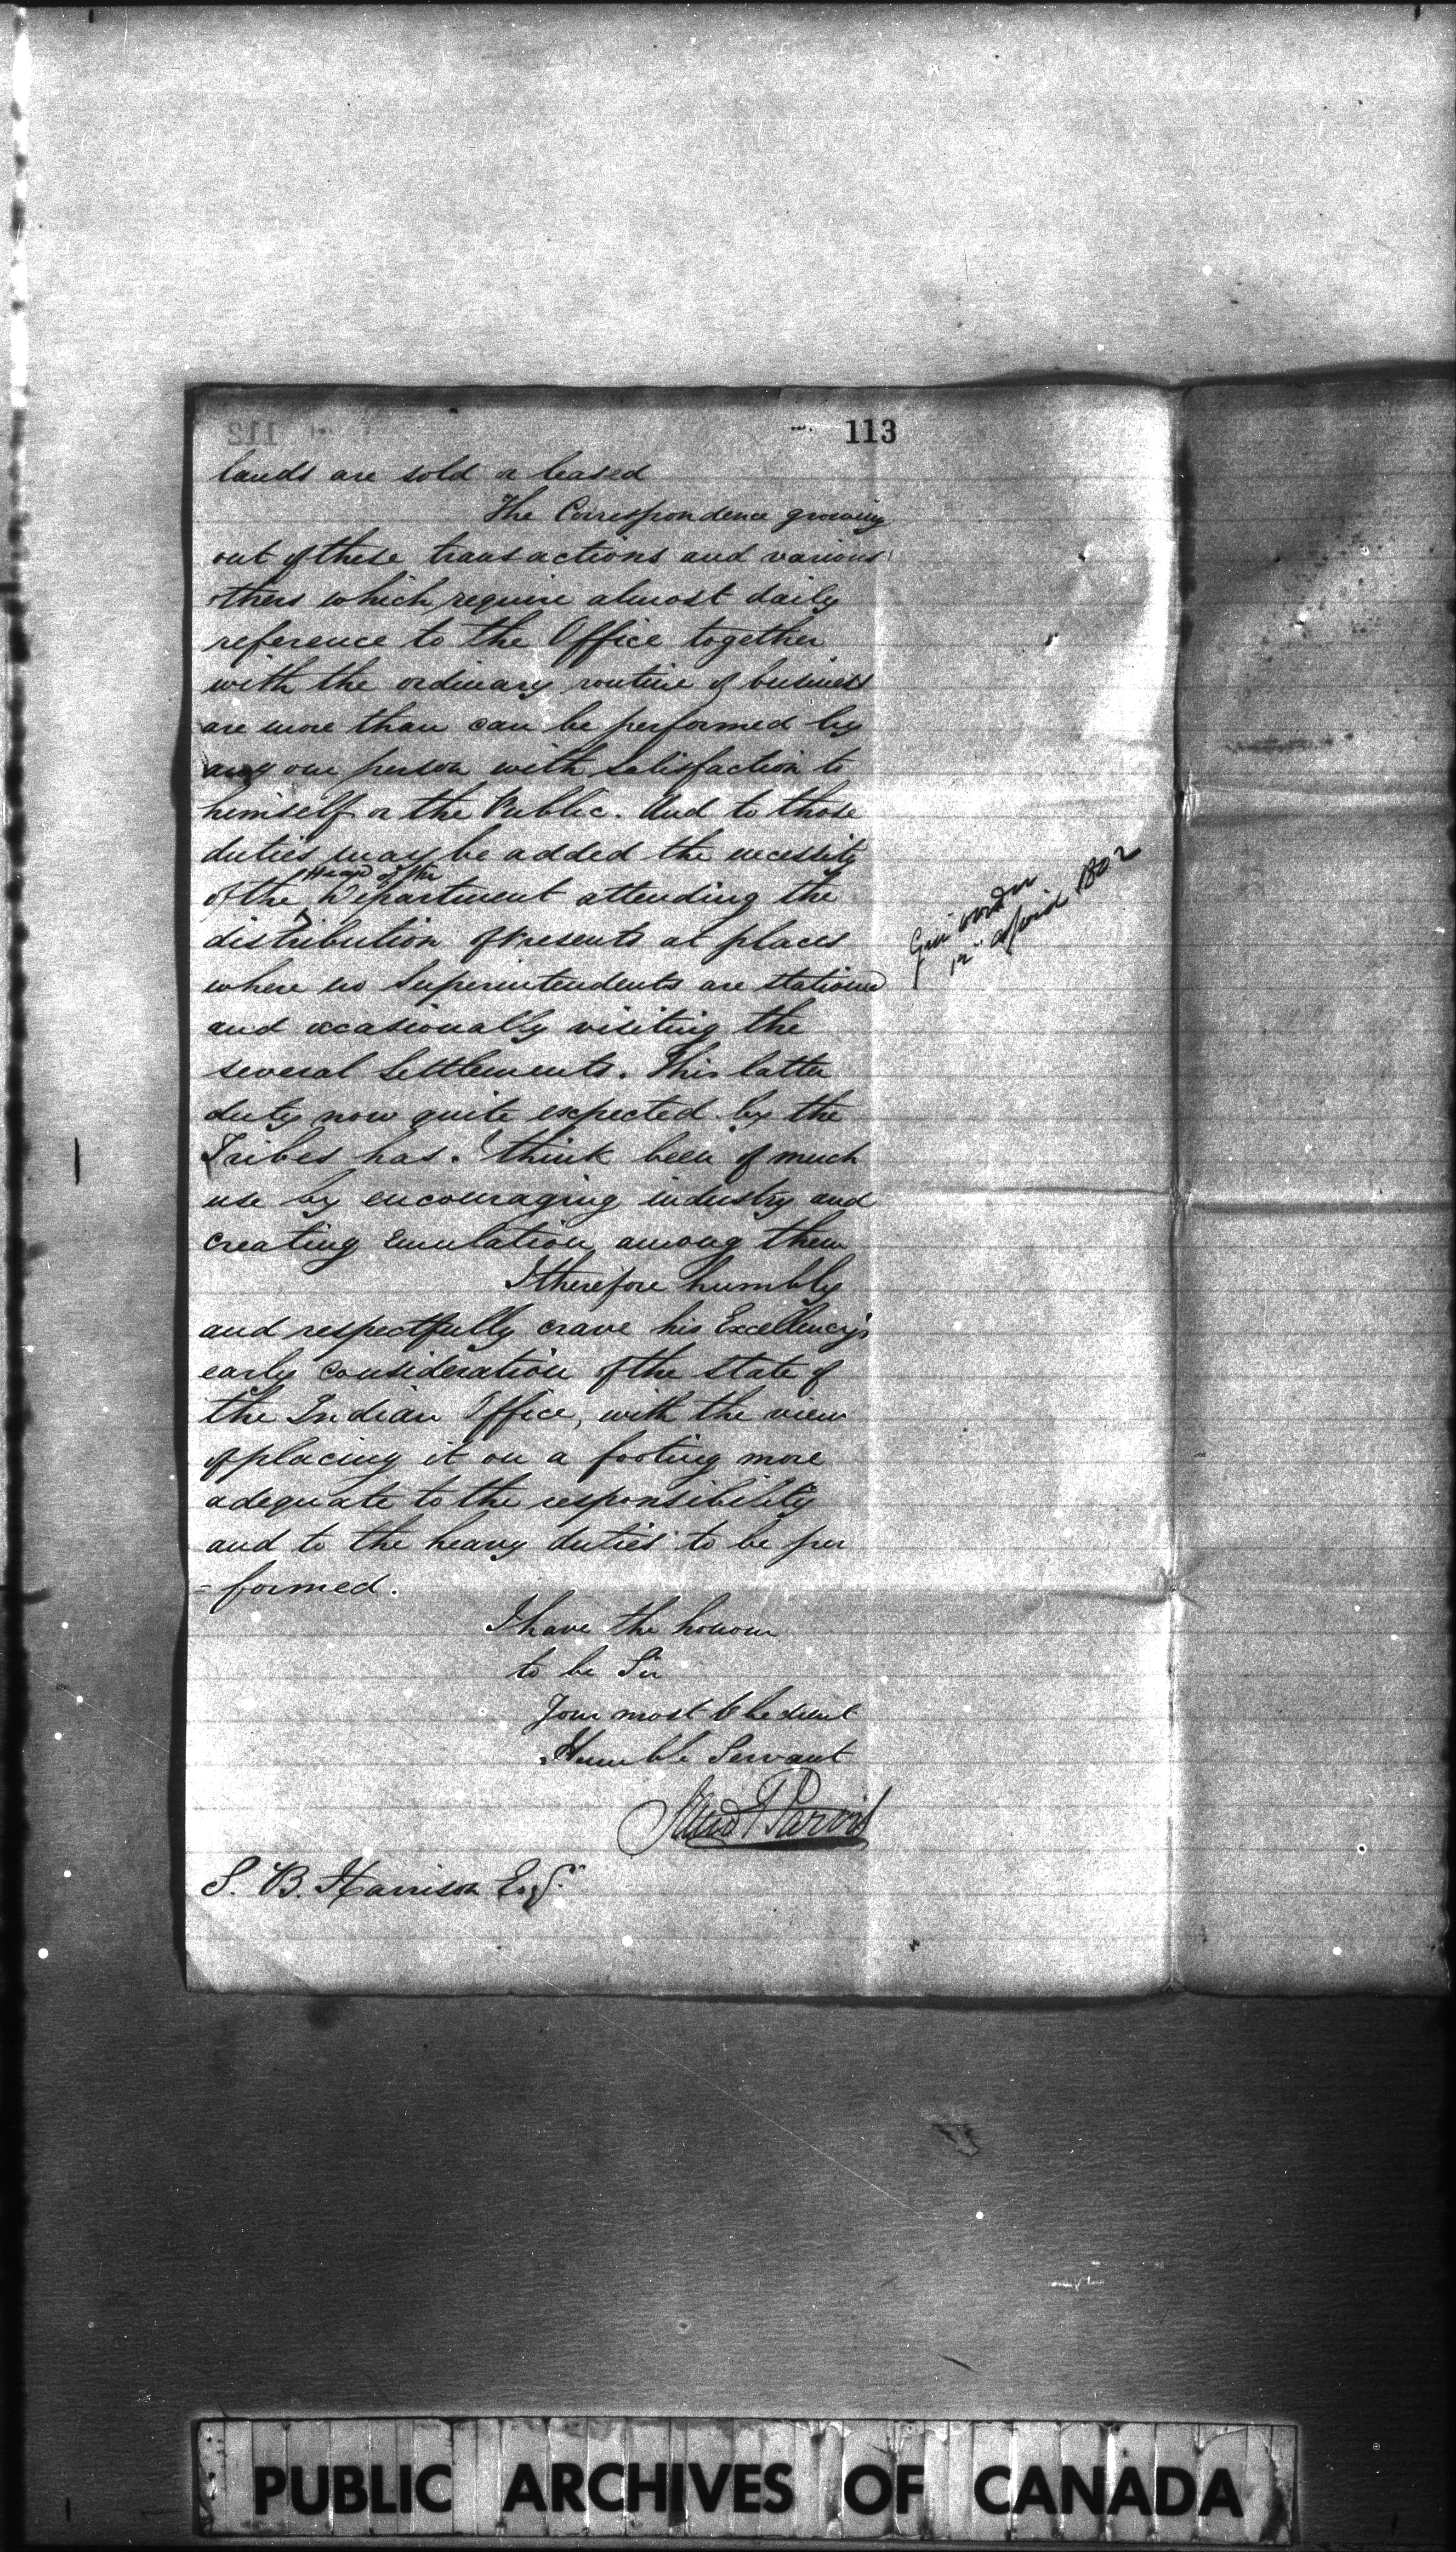 113
lands are sold or leased
The Correspondence growing
out of these transactions and various
others which require almost daily
reference to the Office together
with the ordinary routine of business
are more than can be performed by
any one person with satisfaction to
himself or the Public. And to those
duties may be added the necessity
Head of the
of the Department attending the
distribution of Presents at places
where no Superintendents are stationed
and occasionally visiting the
several Settlements. This latter
duty now quite expected by the
Tribes has I think been of much
use by encouraging industry and
creating Emulation among them
I therefore humbly
and respectfully crave his Excellency's
early consideration of the state of
the Indian Office, with the view
of placing it on a footing more
adequate to the responsibility
and to the heavy duties to be per
=formed.
I have the honour
to be Sir
Your most Obedient
Humble Servant
S. B. Harrison Esqr
PUBLIC ARCHIVES OF CANADA